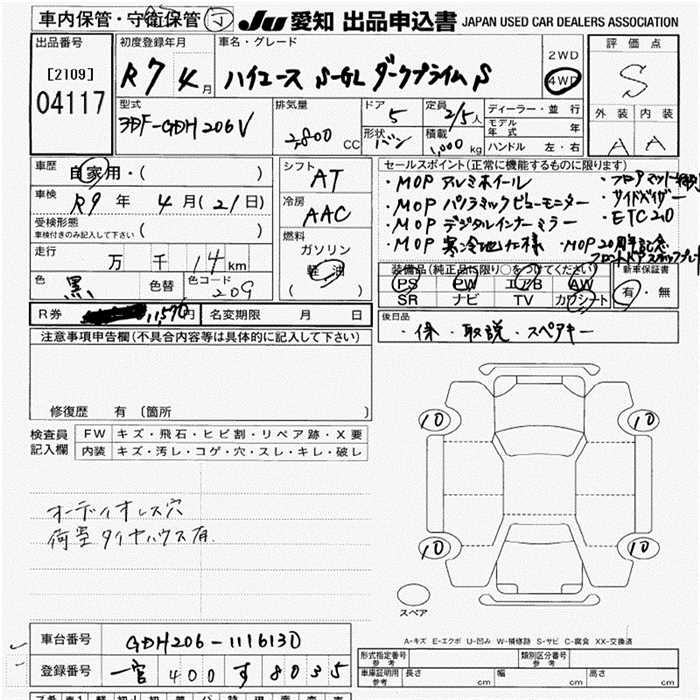 車内保管・守衛保管 JU 愛知 出品申込書 JAPAN USED CAR DEALERS ASSOCIATION
出品番号 初度登録年月 車名・グレード 2WD 評価点
[2109] R7年4月 ハイエース S-GL ダークプライム S 4WD S
04117
型式 排気量 ドア 定員 ディーラー・並行 外装 内装
3DF-GDH206V 2800CC 5 2/5人 モデル年式 年 A A
形状 バン 積載 1,000kg ハンドル 左・右
車歴 自家用・( ) シフト AT セールスポイント(正常に機能するものに限ります)
車検 R9年4月(21日) 冷房 AAC ・MOP アルミホイール
・フロアマット
・MOP パノラミックビューモニター ・サイドバイザー
・MOP デジタルインナーミラー ・ETC2.0
受検形態 車検付きのみ記入して下さい ( ) 燃料 ・MOP 寒冷地仕様 ・MOP 20周年記念
走行 万 千 14km ガソリン 軽油 ( )
装備品(純正品に限り○をつけてください) 新車保証書
色 黒 色替 色コード 209 PS PW エアB AW 有・無
SR ナビ TV カワシート
R券 11,570円 名変期限 月 日 後日品
・保 ・取説 ・スペアキー
注意事項申告欄(不具合内容等は具体的に記入して下さい)
修復歴 有 (箇所 )
検査員記入欄 FW キズ・飛石・ヒビ割・リペア跡・X要
内装 キズ・汚レ・コゲ・穴・スレ・キレ・破レ
10 10
オーディオレス穴
荷室タイヤハウス有
10 10
スペア
A-キズ E-エクボ U-凹み W-補修跡 S-サビ C-腐食 XX-交換済
車台番号 GDH206-1116130
登録番号 一宮 400 す 8035
形式指定番号 参考 類別区分番号 参考
車庫証明用 参考 長さ cm 幅 cm 高さ cm